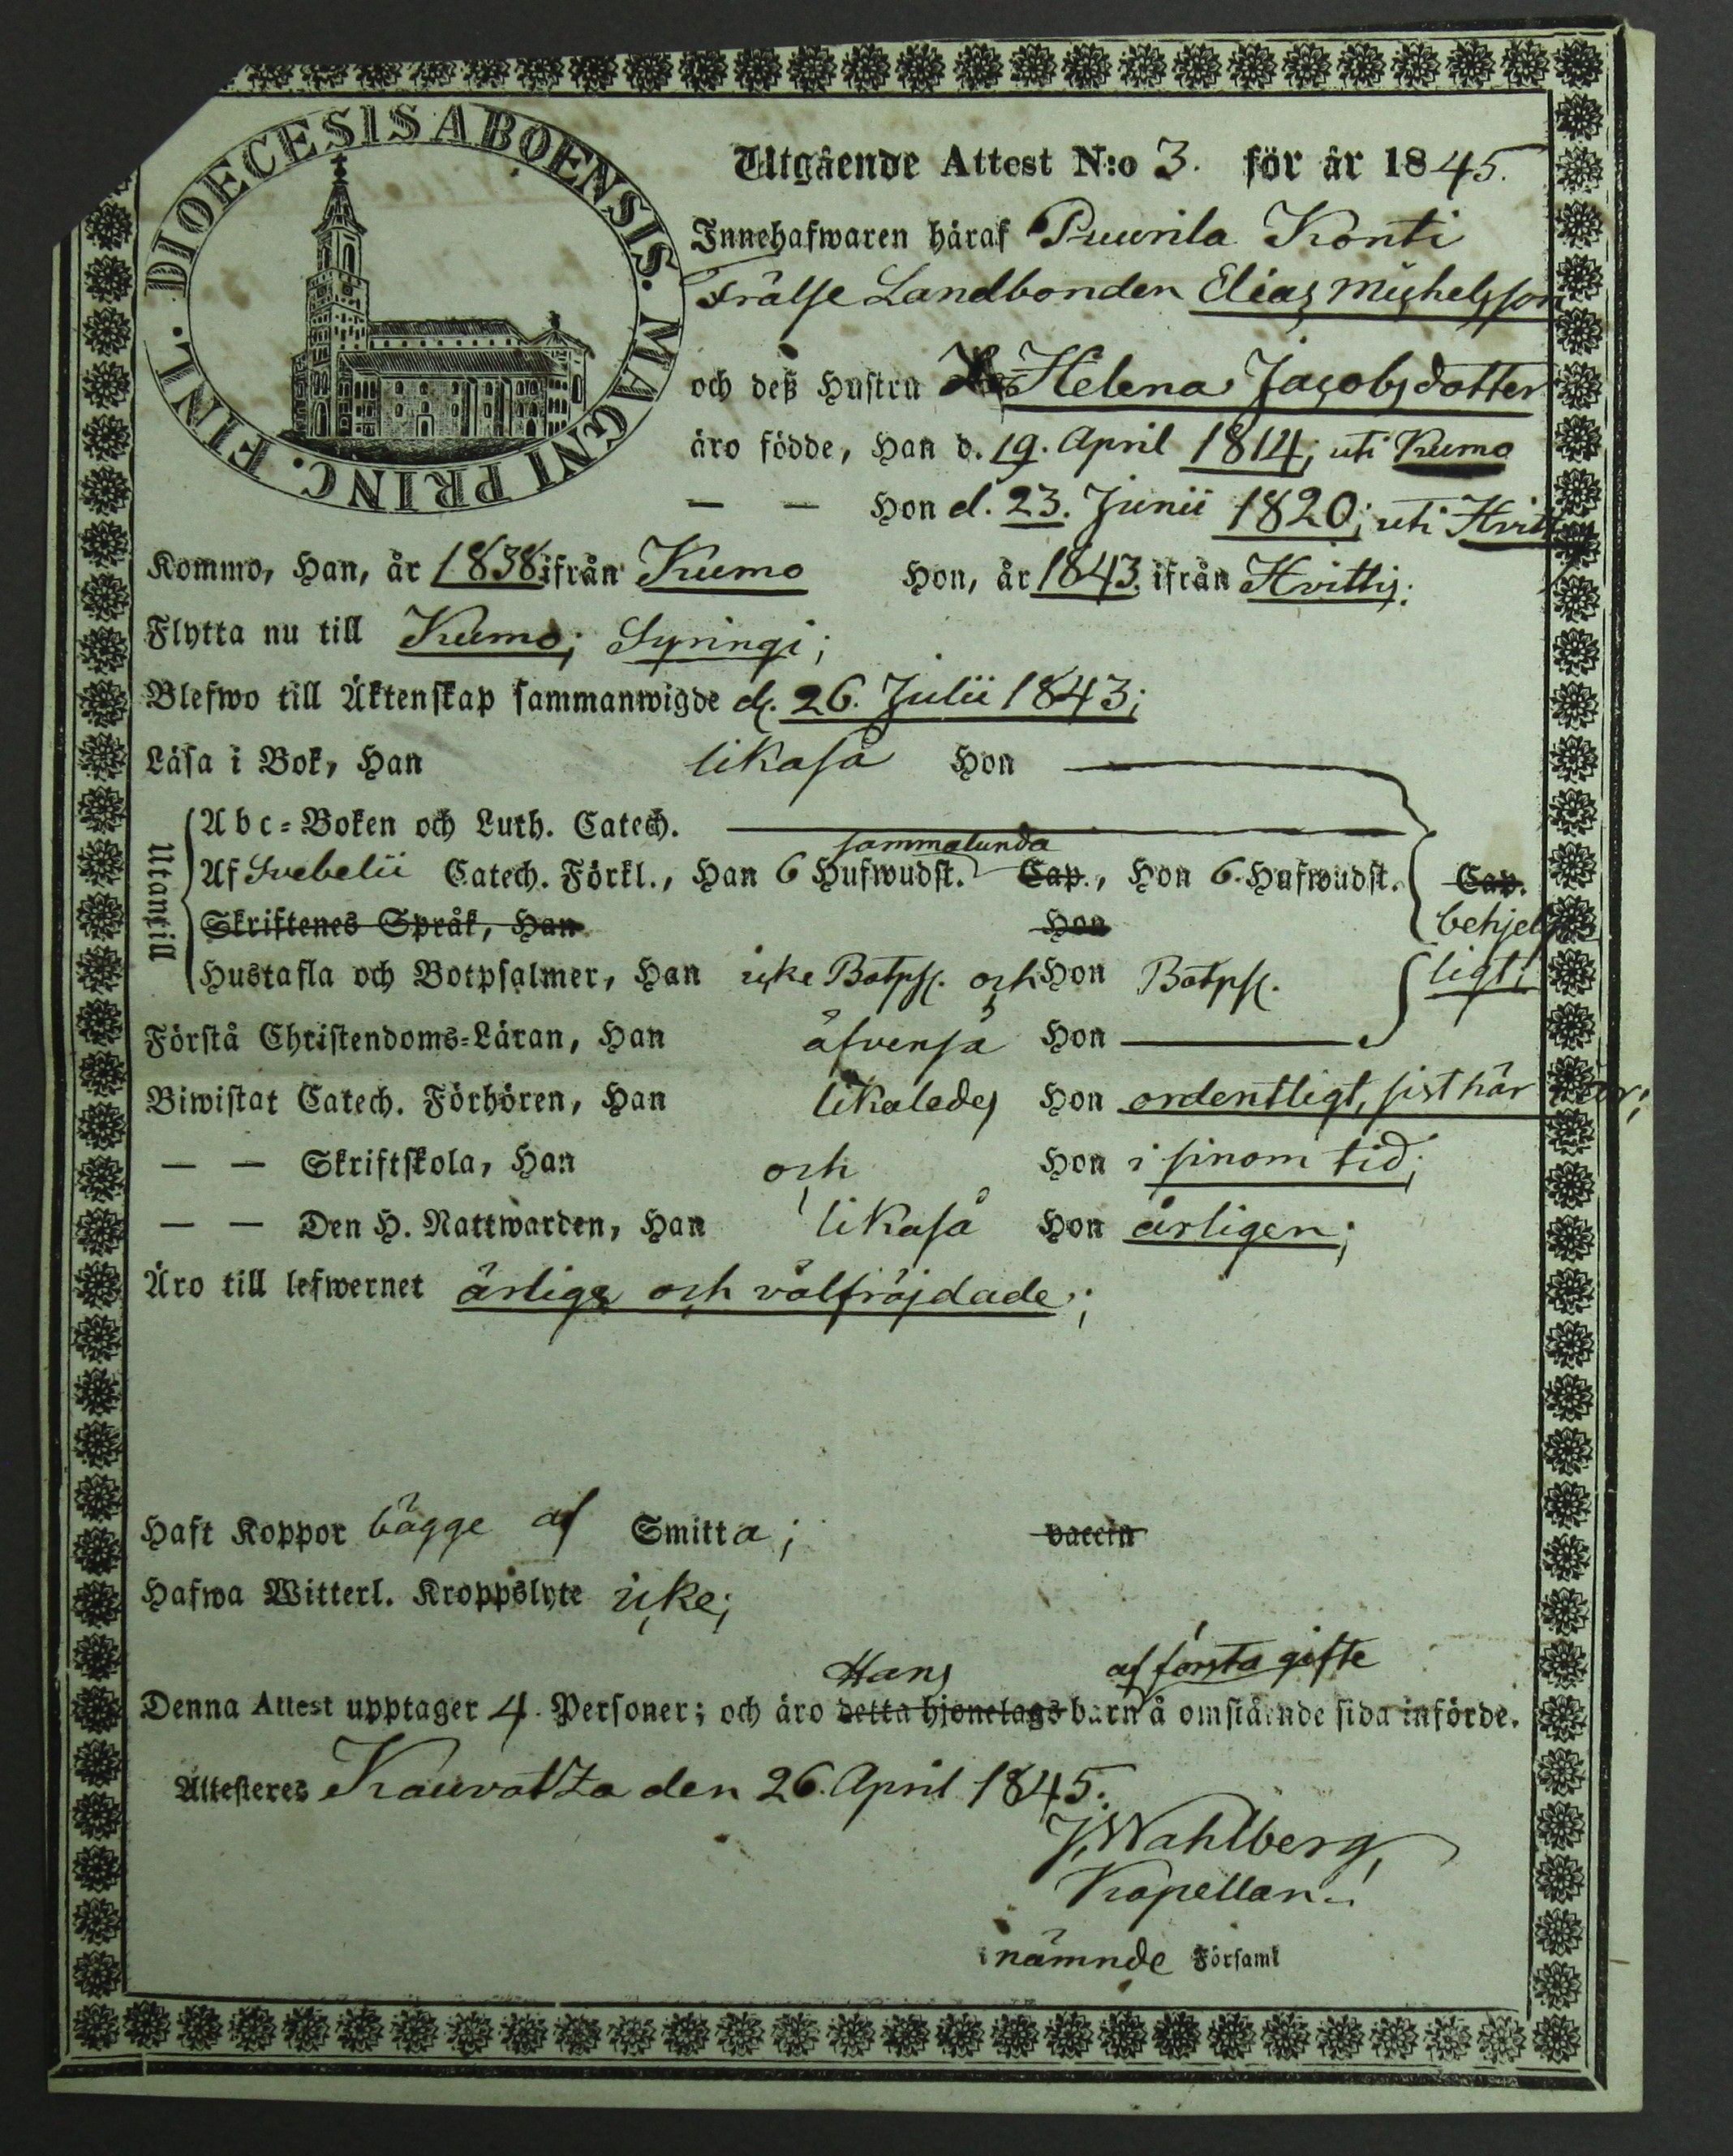 DIOECESIS ABOENSIS. MAGNI PRINC. FINL.
Utgående Attest N:o 3. för år 1845.
Innehafwaren häraf Puurila Konti
Frälse Landbonden Elias Michelsson
och deß Hustru Helena Jacobsdotter
äro födde, Han d. 19. April 1814; uti Kumo
— — Hon d. 23. Junii 1820; uti Hvitt
Kommo, Han, år 1838 ifrån Kumo Hon, år 1843 ifrån Hvittis.
Flytta nu till Kumo; Syringi;
Blefwo till Äktenskap sammanwigde d. 26. Julii 1843;
Läsa i Bok, Han likaså Hon —
Utantill
Abc-Boken och Luth. Catech. —
sammalunda
Af Svebelii Catech. Förkl., Han 6 Hufwudst. Cap., Hon 6. Hufwudst. Cap.
Skriftenes Språk, Han Hon behjelp
Hustafla och Botpsalmer, Han icke Botps. och Hon Botps. ligt;
Förstå Christendoms-Läran, Han äfvenså Hon —
Biwistat Catech. Förhören, Han likaledes Hon ordentligt, sist här
— — Skriftskola, Han och Hon i sinom tid;
— — Den H. Nattwarden, Han likaså Hon årligen;
Äro till lefwernet ärliga och välfräjdade;
Haft Koppor bägge af Smitta; vaccin
Hafwa Witterl. Kroppslyte icke;
Hans af första gifte
Denna Attest upptager 4. Personer; och äro detta hjonelags barn å omstående sida införde.
Attesteres Kauvatza den 26. April 1845.
J. Wahlberg,
Kapellan.
i nämnde Församl